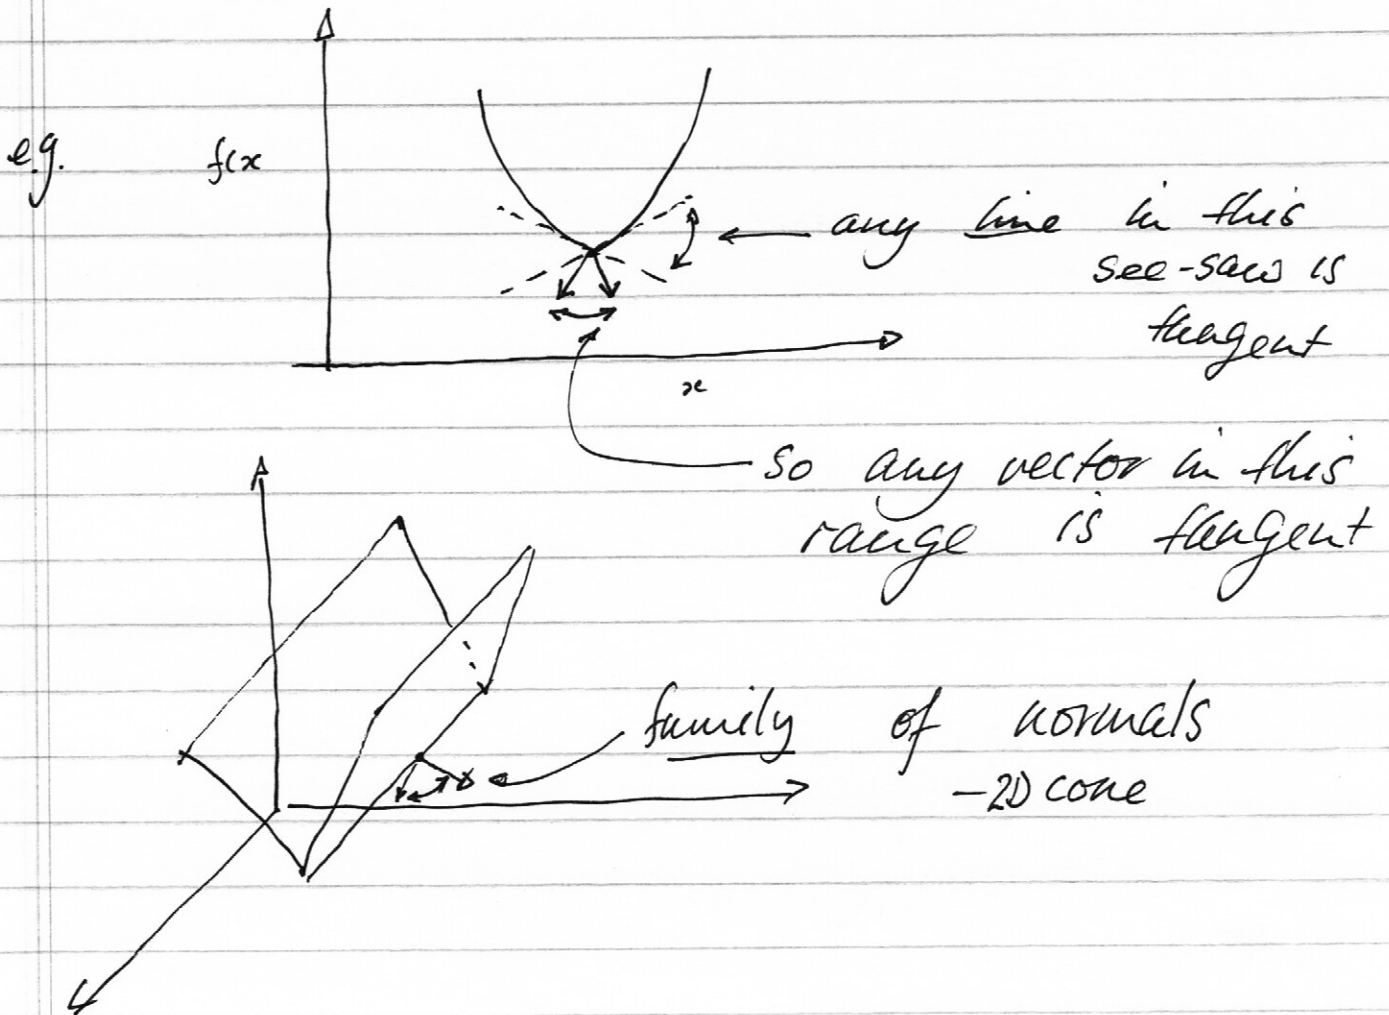 e.g.
f(x
any line in this
see-saw is
tangent
x
so any vector in this
range is tangent
family of normals
-2D cone